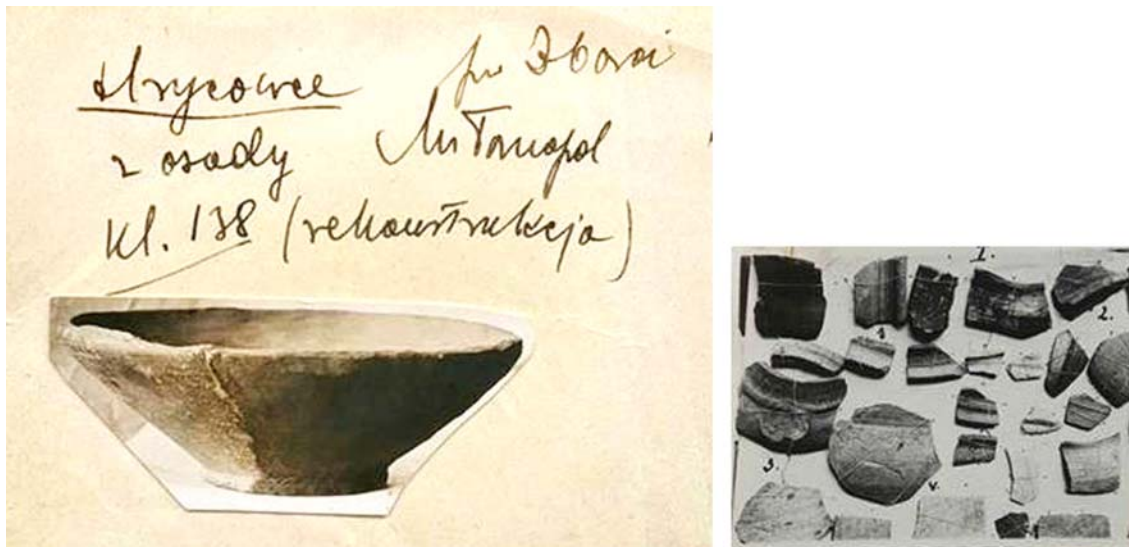 Hrycowce
z osady Tarnopol
Kl. 138 (rekonstrukcja)
1.
2.
3.